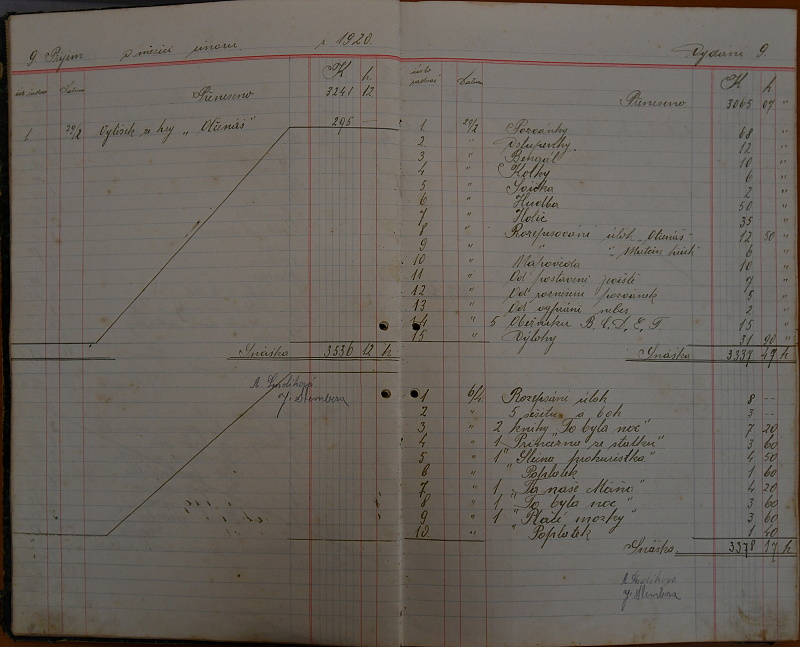 9. Příjem v měsíci únoru r. 1920.
K h
Datum
Přeneseno 3241 12
1 29/2 Výtisek ze hry „Otčenáš" 295 —
Snáška 3536 12 h
J. Štembera
Vydání 9.
číslo Datum K h
Přeneseno 3065 07 "
1 29/2 Pozvánky 68 "
2 " Vstupenky 12 "
3 " Bengál 10 "
4 " Kolky 6 "
5 " 2 "
6 " Hudba 50 "
7 " Holič 35 "
8 " Rozepisování úloh „Otčenáš" 12 50
9 " " " 6 "
10 " Nápověda 10 "
11 " Od postavení jeviště 7 "
12 " Od roznešení pozvánek 5 "
13 " Od vyprání 2 "
14 " 5 15 "
15 Výlohy 31 90 "
Snáška 3337 47 h
1 6/4 Rozepsání úloh 8 --
2 " 5 sešitů 3 --
3 " 2 knihy „To byla noc" 7 20
4 " 1 " Princezna ze statku" 3 60
5 " 1 " Slečna prokuristka" 4 50
6 " Poplatek 1 60
7 " 1 „Ta naše Máňa" 4 20
8 " 1 „To byla noc" 3 60
9 " 1 " mozky" 3 60
10 " Poplatek 1 40
Snáška 3378 17 h
J. Štembera